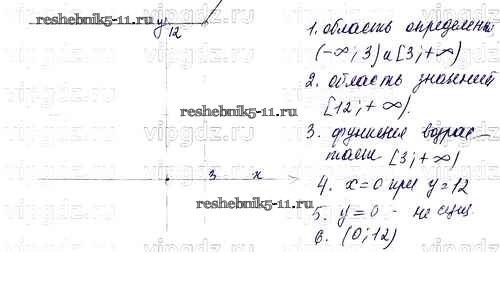 reshebnik5-11.ru
y
12
1. область определения
(-∞; 3) и [3; +∞)
2. область значений
[12; +∞).
reshebnik5-11.ru
3. функция возрас-
тает [3; +∞)
3 x
4. x=0 при y=12
reshebnik5-11.ru
5. y=0 - не сущ.
6. (0; 12)
vipgdz.ru